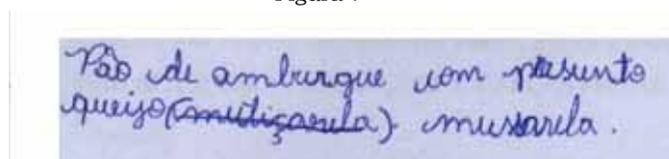 Pão de amburgue com presunto
queijo (mudiçarula) mussarela.